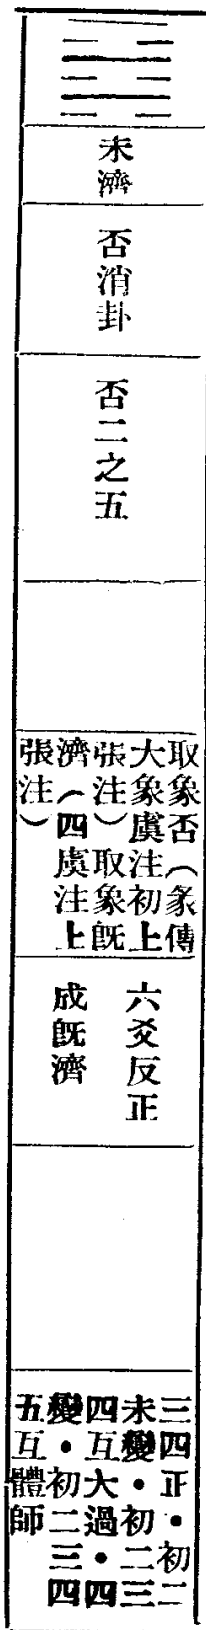 未濟
否消卦
否二之五
取象否（彖傳
大象虞注初上
張注）取象既
濟（四虞注上
張注）
六爻反正
成既濟
三四正・初二
未變・初二三
四互大過・四
變・初二三四
五互體師